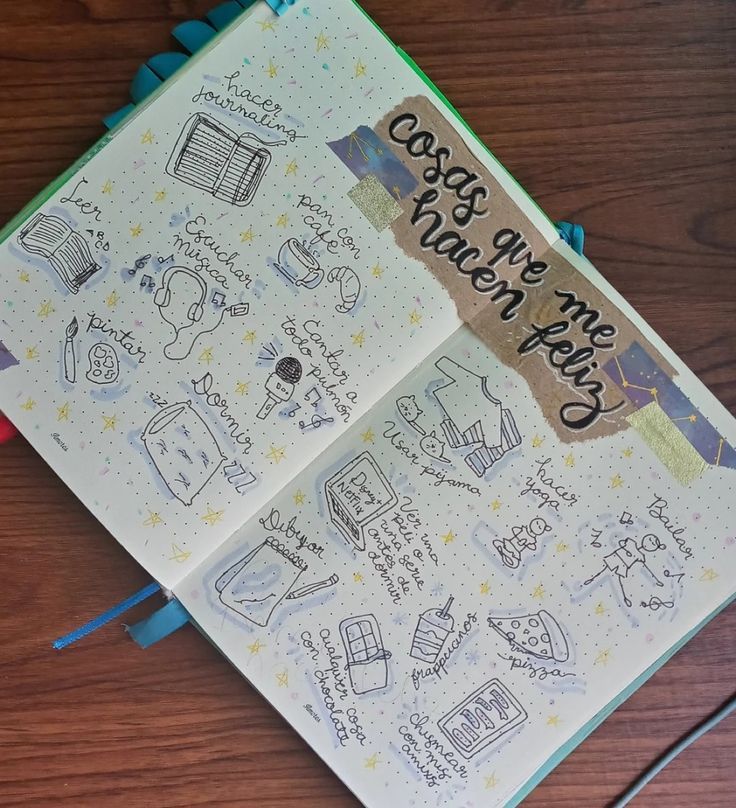 cosas que me
hacen feliz
hacer
journaling
Leer
ABCD
Escuchar
música
pan con
café
pintar
Cantar a
todo pulmón
Dormir
zzz
zzz
Usar pijama
hacer
yoga
Bailar
Disney+
NETFLIX
Ver una
peli o
una serie
antes de
dormir
Dibujar
cualquier cosa
con chocolate
frappuccinos
pizza
chismear
con mis
amixs